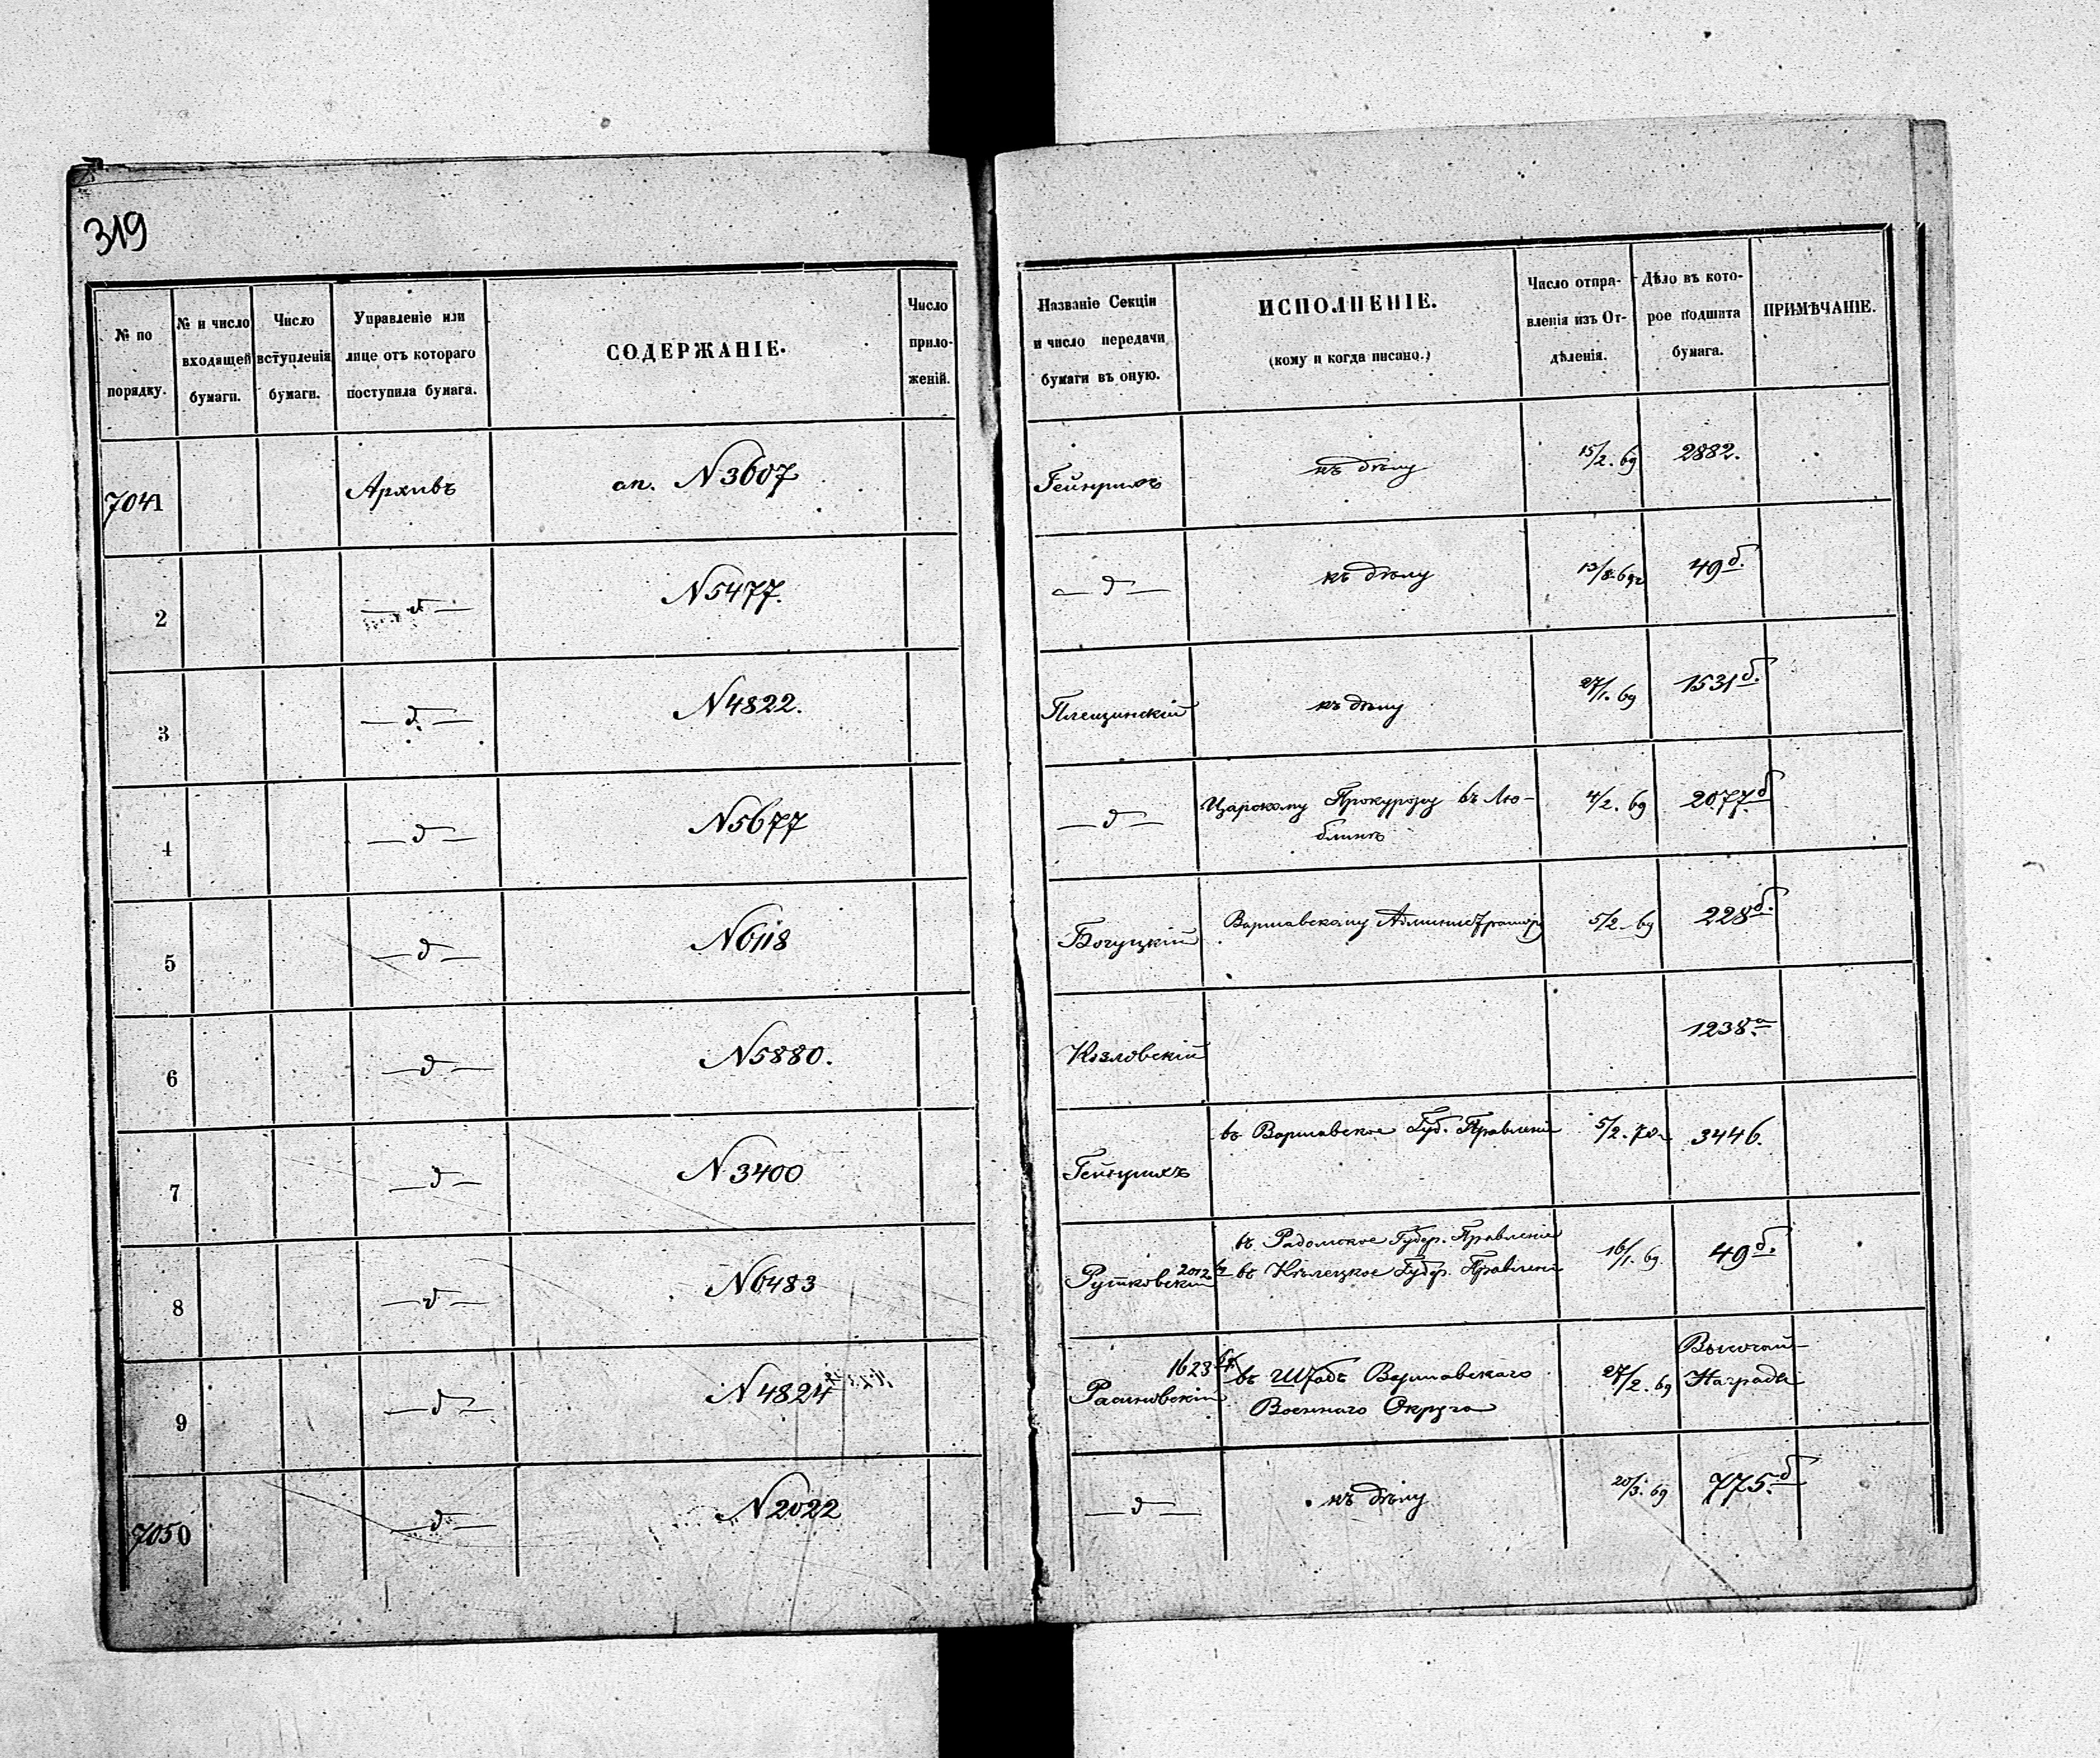 319
№ по порядку.
№ и число входящей бумаги.
Число вступленія бумаги.
Управленіе или лице отъ котораго поступила бумага.
СОДЕРЖАНІЕ.
Число приложеній.
Названіе Секціи и число передачи бумаги въ оную.
ИСПОЛНЕНІЕ.
(кому и когда писано.)
Число отправленія изъ Отдѣленія.
Дѣло въ которое подшита бумага.
ПРИМѢЧАНІЕ.
7041 Архивъ ап. N 3607 Гейнрихъ къ дѣлу 15/2. 69 2882.
2 — д — N 5477. — д — къ дѣлу 13/8. 69 49 б.
3 — д — N 4822. Плещинскій къ дѣлу 27/1. 69 1531 б.
4 — д — N 5677 — д — Царскому Прокурору въ Лю-
блинѣ 4/2. 69 2077 б
5 — д — N 6118 Богуцкій Варшавскому Администратору 5/2 69 228 б.
6 — д — N 5880. Козловскій 1238 а
7 — д — N 3400 Гейнрихъ въ Варшавское Губ. Правленіе 5/2. 70 3446.
8 — д — N 6483 Рутковскій въ Радомское Губер. Правленіе
2012 въ Кѣлецкое Губер. Правленіе 16/1. 69 49 б.
9 — д — N 4824 Расиновскій 1623 въ Штабъ Варшавскаго
Военнаго Округа 27/2. 69 Высочай-
Награды
7050 — д — N 2022 — д — къ дѣлу 20/3. 69 775 б